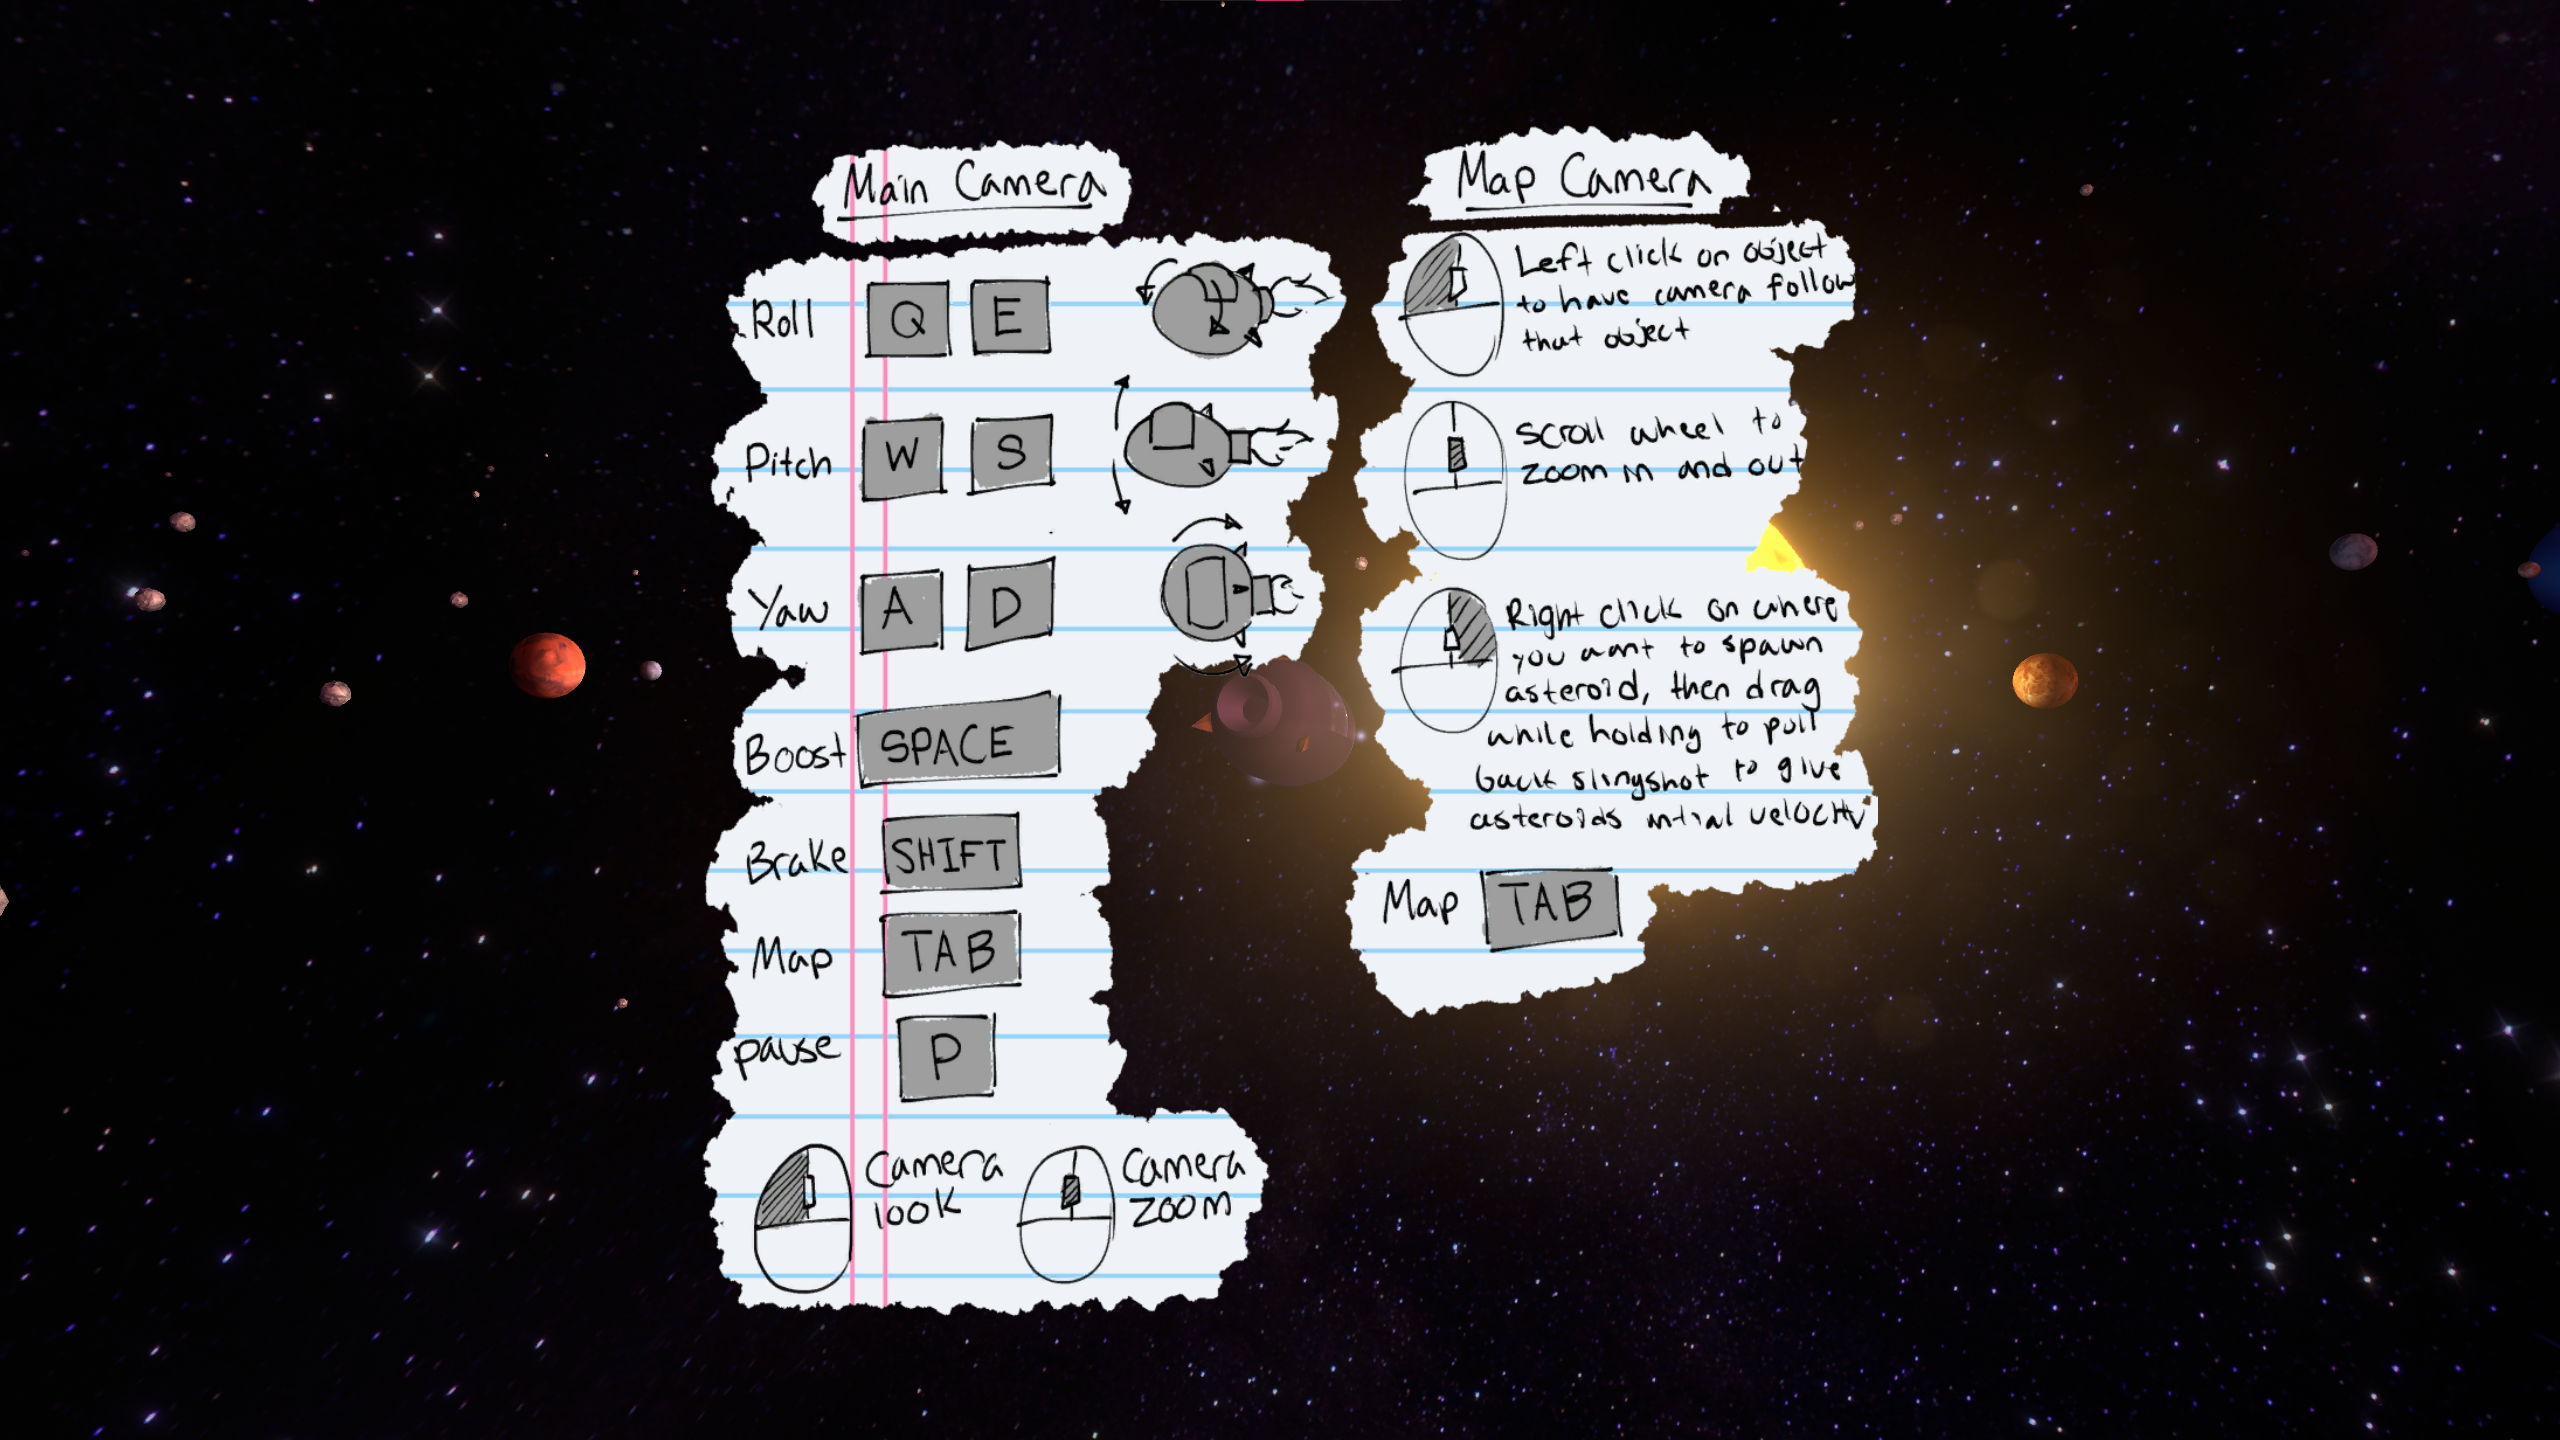 Main Camera
Roll Q E
Pitch W S
Yaw A D
Boost SPACE
Brake SHIFT
Map TAB
pause P
Camera
look
Camera
zoom
Map Camera
Left click on object
to have camera follow
that object
Scroll wheel to
zoom in and out
Right click on where
you want to spawn
asteroid, then drag
while holding to pull
back slingshot to give
asteroids intial velocity
Map TAB